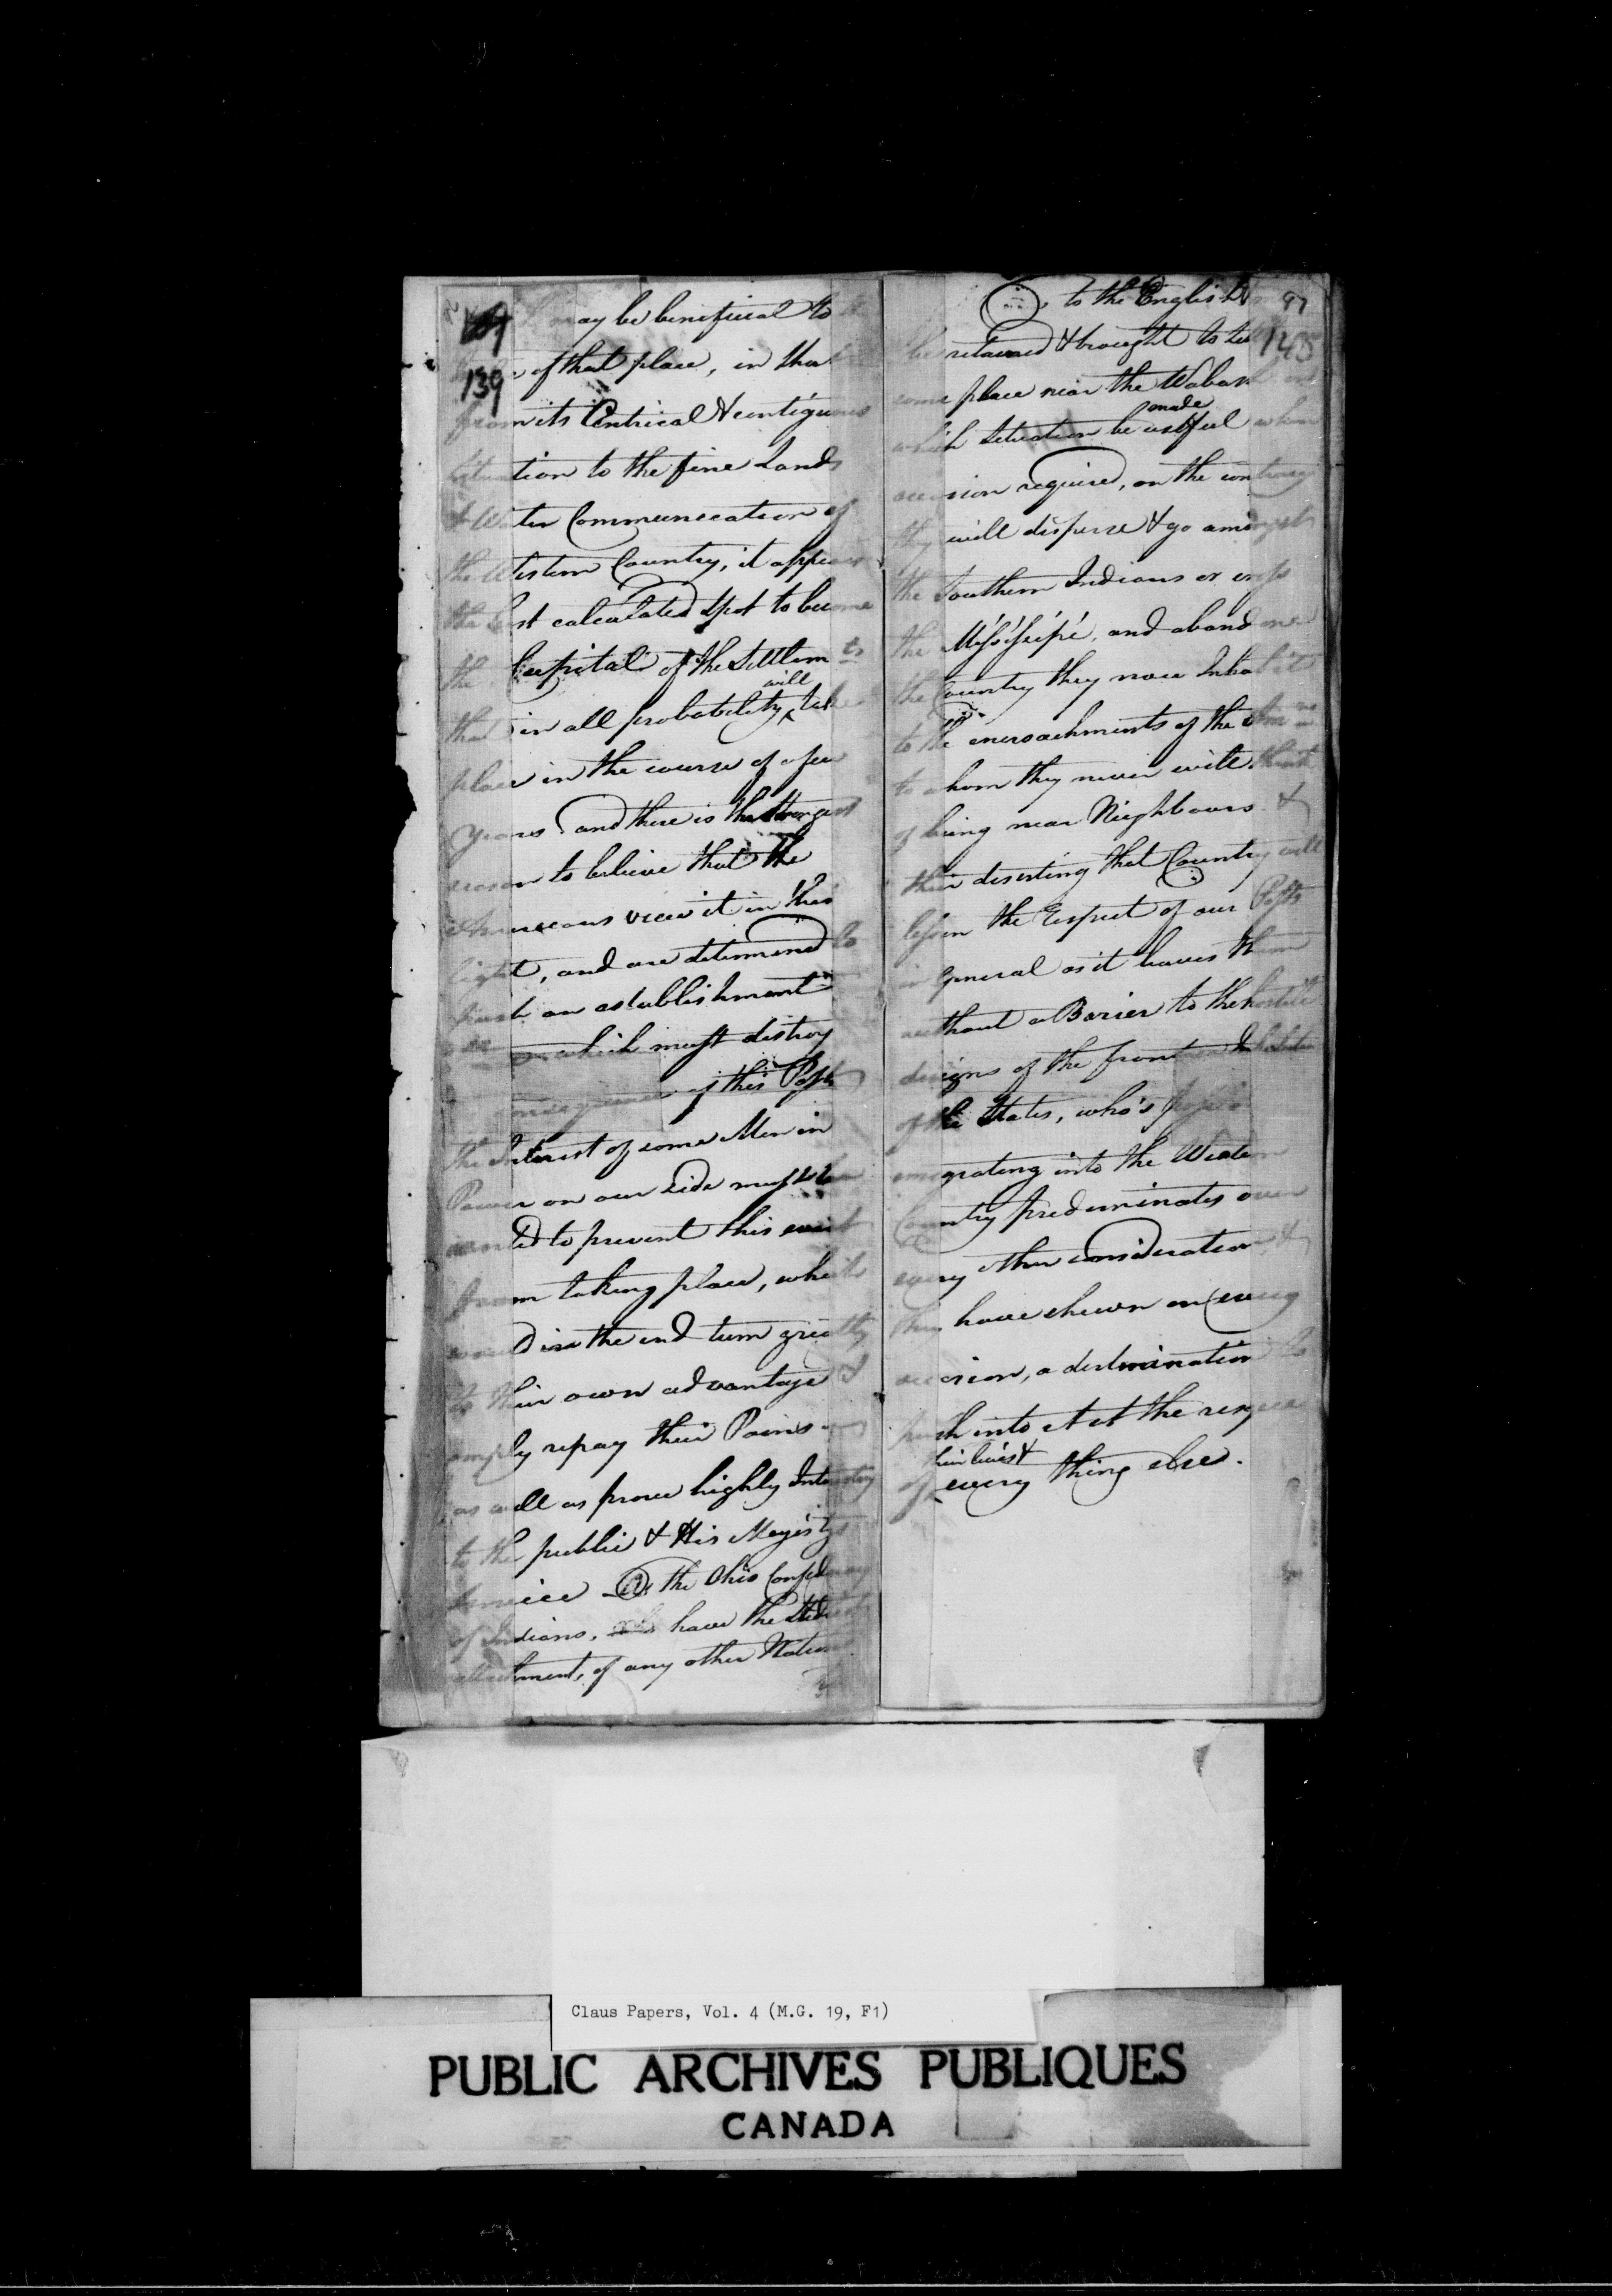 139
may be benificial to
of that place, in that
from its Centrical & contiguous
situation to the fine Lands
& Water Communication of
the Western Country, it appears
the best calculated spot to become
the Capital of the Settlemts
that in all probability will take
place in the course of a few
years and there is the strongest
reason to believe that the
Americans view it in this
light, and are determined to
push an establishment
which must distroy
consequence of this Post
the Interest of some Men in
Power on our side must be
wanted to prevent this event
from taking place, which
would in the end turn greatly
to their own advantage &
amply repay their Pains
as well as prove highly Interesting
to the public & His Majestys
Service the Ohio Confedracy
of Indians, have the
attachment, of any other Nation
97
145
to the English
be retained & brought to
some place near the Wabash
which Situation be made usefful when
occasion require, on the contrary
they will disperse & go amongst
the Southern Indians or cross
the Missisipi, and abandone
the Country they now Inhabit
to the encroachments of the
to whom they never will think
of being near Neighbours &
their deserting that Country will
lessen the Respect of our Posts
in General as it leaves them
without a Barier to the hostile
designs of the frontier Inhabitan
of the States, who's
emigrating into the Western
Country predominates over
every other consideration &
they have shewn on every
occasion, a determination to
push into it at the
of their lives & every thing else.
Claus Papers, Vol. 4 (M.G. 19, F1)
PUBLIC ARCHIVES PUBLIQUES
CANADA